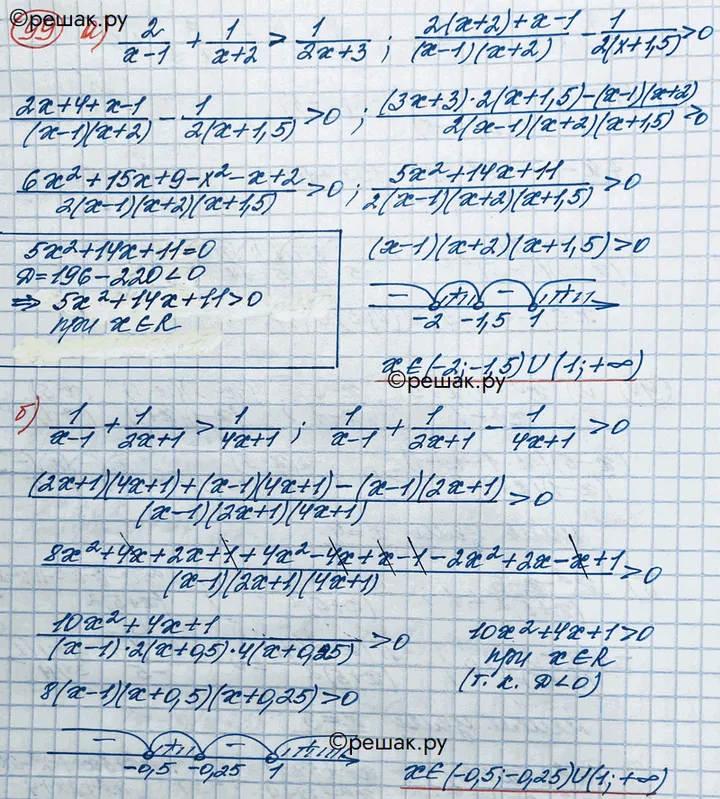 ©решак.ру
99 а) 2/(x-1) + 1/(x+2) > 1/(2x+3) ; (2(x+2)+x-1)/((x-1)(x+2)) - 1/(2(x+1,5)) > 0
(2x+4+x-1)/((x-1)(x+2)) - 1/(2(x+1,5)) > 0 ; ((3x+3)·2(x+1,5)-(x-1)(x+2))/(2(x-1)(x+2)(x+1,5)) > 0
(6x²+15x+9-x²-x+2)/(2(x-1)(x+2)(x+1,5)) > 0 ; (5x²+14x+11)/(2(x-1)(x+2)(x+1,5)) > 0
5x²+14x+11=0
D=196-220<0
⇒ 5x²+14x+11>0
при x∈R
(x-1)(x+2)(x+1,5)>0
- + - +
-2 -1,5 1
x∈(-2;-1,5)∪(1;+∞)
©решак.ру
б) 1/(x-1) + 1/(2x+1) > 1/(4x+1) ; 1/(x-1) + 1/(2x+1) - 1/(4x+1) > 0
((2x+1)(4x+1)+(x-1)(4x+1)-(x-1)(2x+1))/((x-1)(2x+1)(4x+1)) > 0
(8x²+4x+2x+1+4x²-4x+x-1-2x²+2x-x+1)/((x-1)(2x+1)(4x+1)) > 0
(10x²+4x+1)/((x-1)·2(x+0,5)·4(x+0,25)) > 0
10x²+4x+1>0
при x∈R
(т.к. D<0)
8(x-1)(x+0,5)(x+0,25)>0
- + - +
©решак.ру
-0,5 -0,25 1
x∈(-0,5;-0,25)∪(1;+∞)